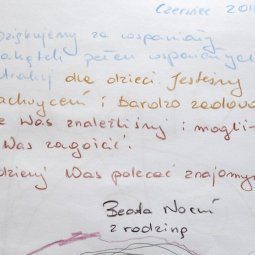 Czerwiec 201
Dziękujemy za wspaniały
zakątek pełen wspomnianych
atrakcji dla dzieci. Jesteśmy
zachwyceni i bardzo zadowo
że Was znaleźliśmy i mogli-
Was zagościć.
Was polecać znajomym
Beata
z rodziną